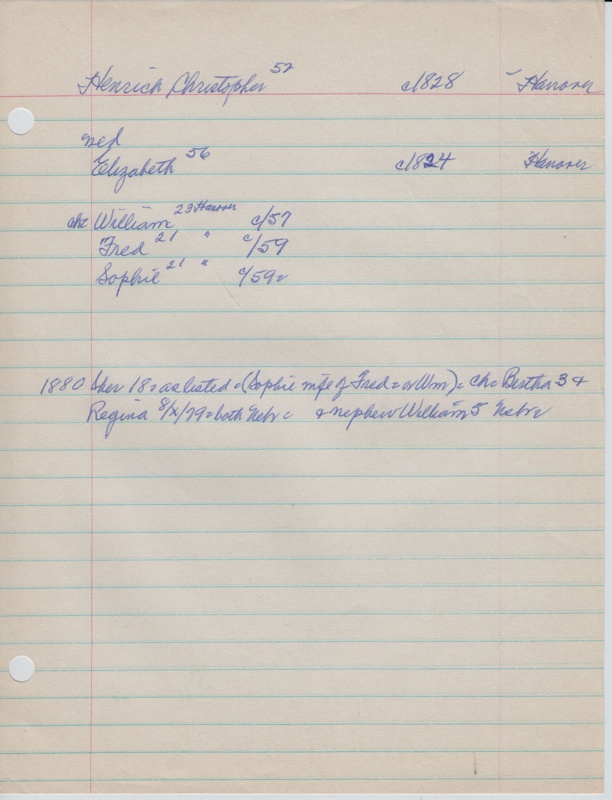 Henrich Christopher 52 c1828 Hanover
med
Elizabeth 56 c1824 Hanover
ch= William 23 Hanover c/57
Fred 21 " c/59
Sophie 21 " c/59=
1880 Sher 18= as listed = (Sophie wife of Fred = or Wm) = ch= Bertha 3 &
Regina 8/X/79 = both Nebr = & nephew William 5 Nebr=